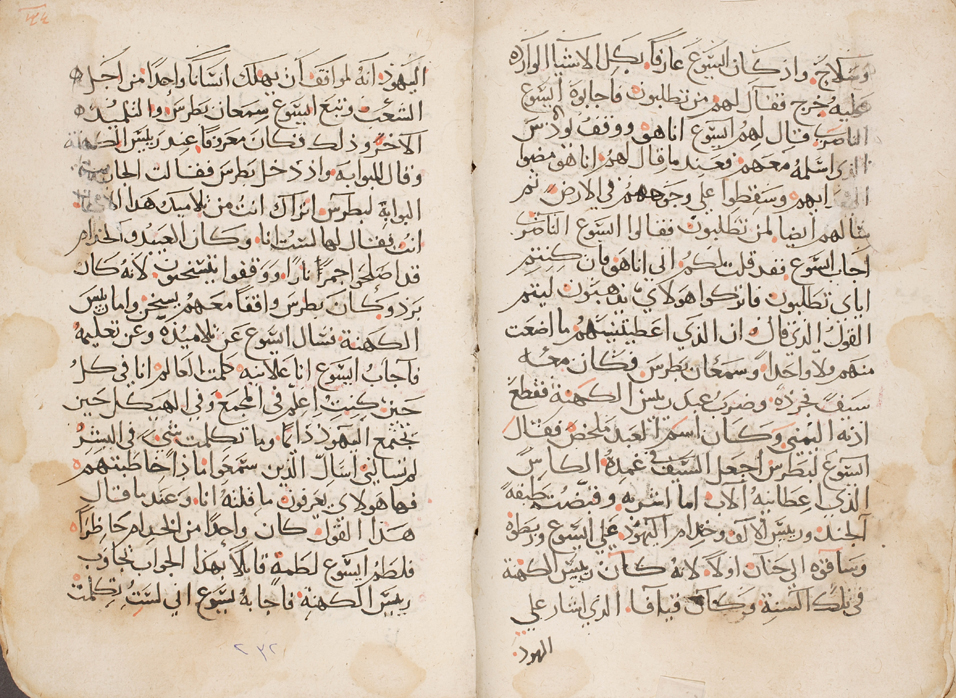 وسلاح، واذ كان ايسوع عارفًا بكل الاشيا الوارده
عليه خرج فقال لهم من تطلبون فاجابوه ايسوع
الناصري قال لهم ايسوع انا هو ووقف لوذس
الذي اسلمه معهم فعند ما قال لهم انا هو مضوا
الي ورايهم وسقطوا علي وجوههم في الارض ثم
سالهم ايضا لمن تطلبون فقالوا ايسوع الناصري
اجاب ايسوع فقد قلت لكم اني انا هو فان كنتم
اياي تطلبون فاتركوا هولاي يذهبون ليتم
القول الذي قال ان الذي اعطيتنيهم ما اضعت
منهم ولا واحدا وسمعان بطرس فكان معه
سيف فجرده وضرب عبد ريس الكهنة فقطع
اذنه اليمني وكان اسم العبد ملخص فقال
ايسوع لبطرس اجعل السيف في غمده الكاس
الذي اعطانيه الاب اما اشربه وقبضت
الجند وريس الالف وخدام اليهود علي ايسوع وربطوه
وساقوه الي حنان اولاً لانه كان ريس الكهنة
في تلك السنة وكان قيافا الذي اشار علي
الهود
١٤٤
اليهود انه لموافق ان يهلك انسانا واحدا من اجل
الشعب وتبع ايسوع سمعان بطرس والتلميذ
الاخر وذلك فكان معروفا عند ريس الكهنة
وقال للبوابه واذ دخل بطرس فقالت الجاريه
البوابة لبطرس اتراك انت من تلاميذ هذا
انت فقال لها لست انا وكان العبيد والخدام
قد اصلحوا جمرًا نارًا ووقفوا يتسخنون لانه كان
برد وكان بطرس واقفا معهم يسخن واما ريس
الكهنة فسال ايسوع عن تلاميذه وعن تعليمه
فاجاب ايسوع انا علانيه كلمت العالم انا في كل
حين كنت اعلم في المجمع وفي الهيكل حين
تجتمع اليهود دايما وما تكلمت شي في السر
لم تسالني اسال الذين سمعوا ماذا خاطبتهم
فها هولاي يعرفون ما قلته انا وعند ما قال
هذا القول كان واحدا من الخدام حاضرًا
فلطم ايسوع لطمة قايلاً بهذا الجواب تجاوب
رييس الكهنة فاجابه يسوع اني لست تكلمت
٢٣٢